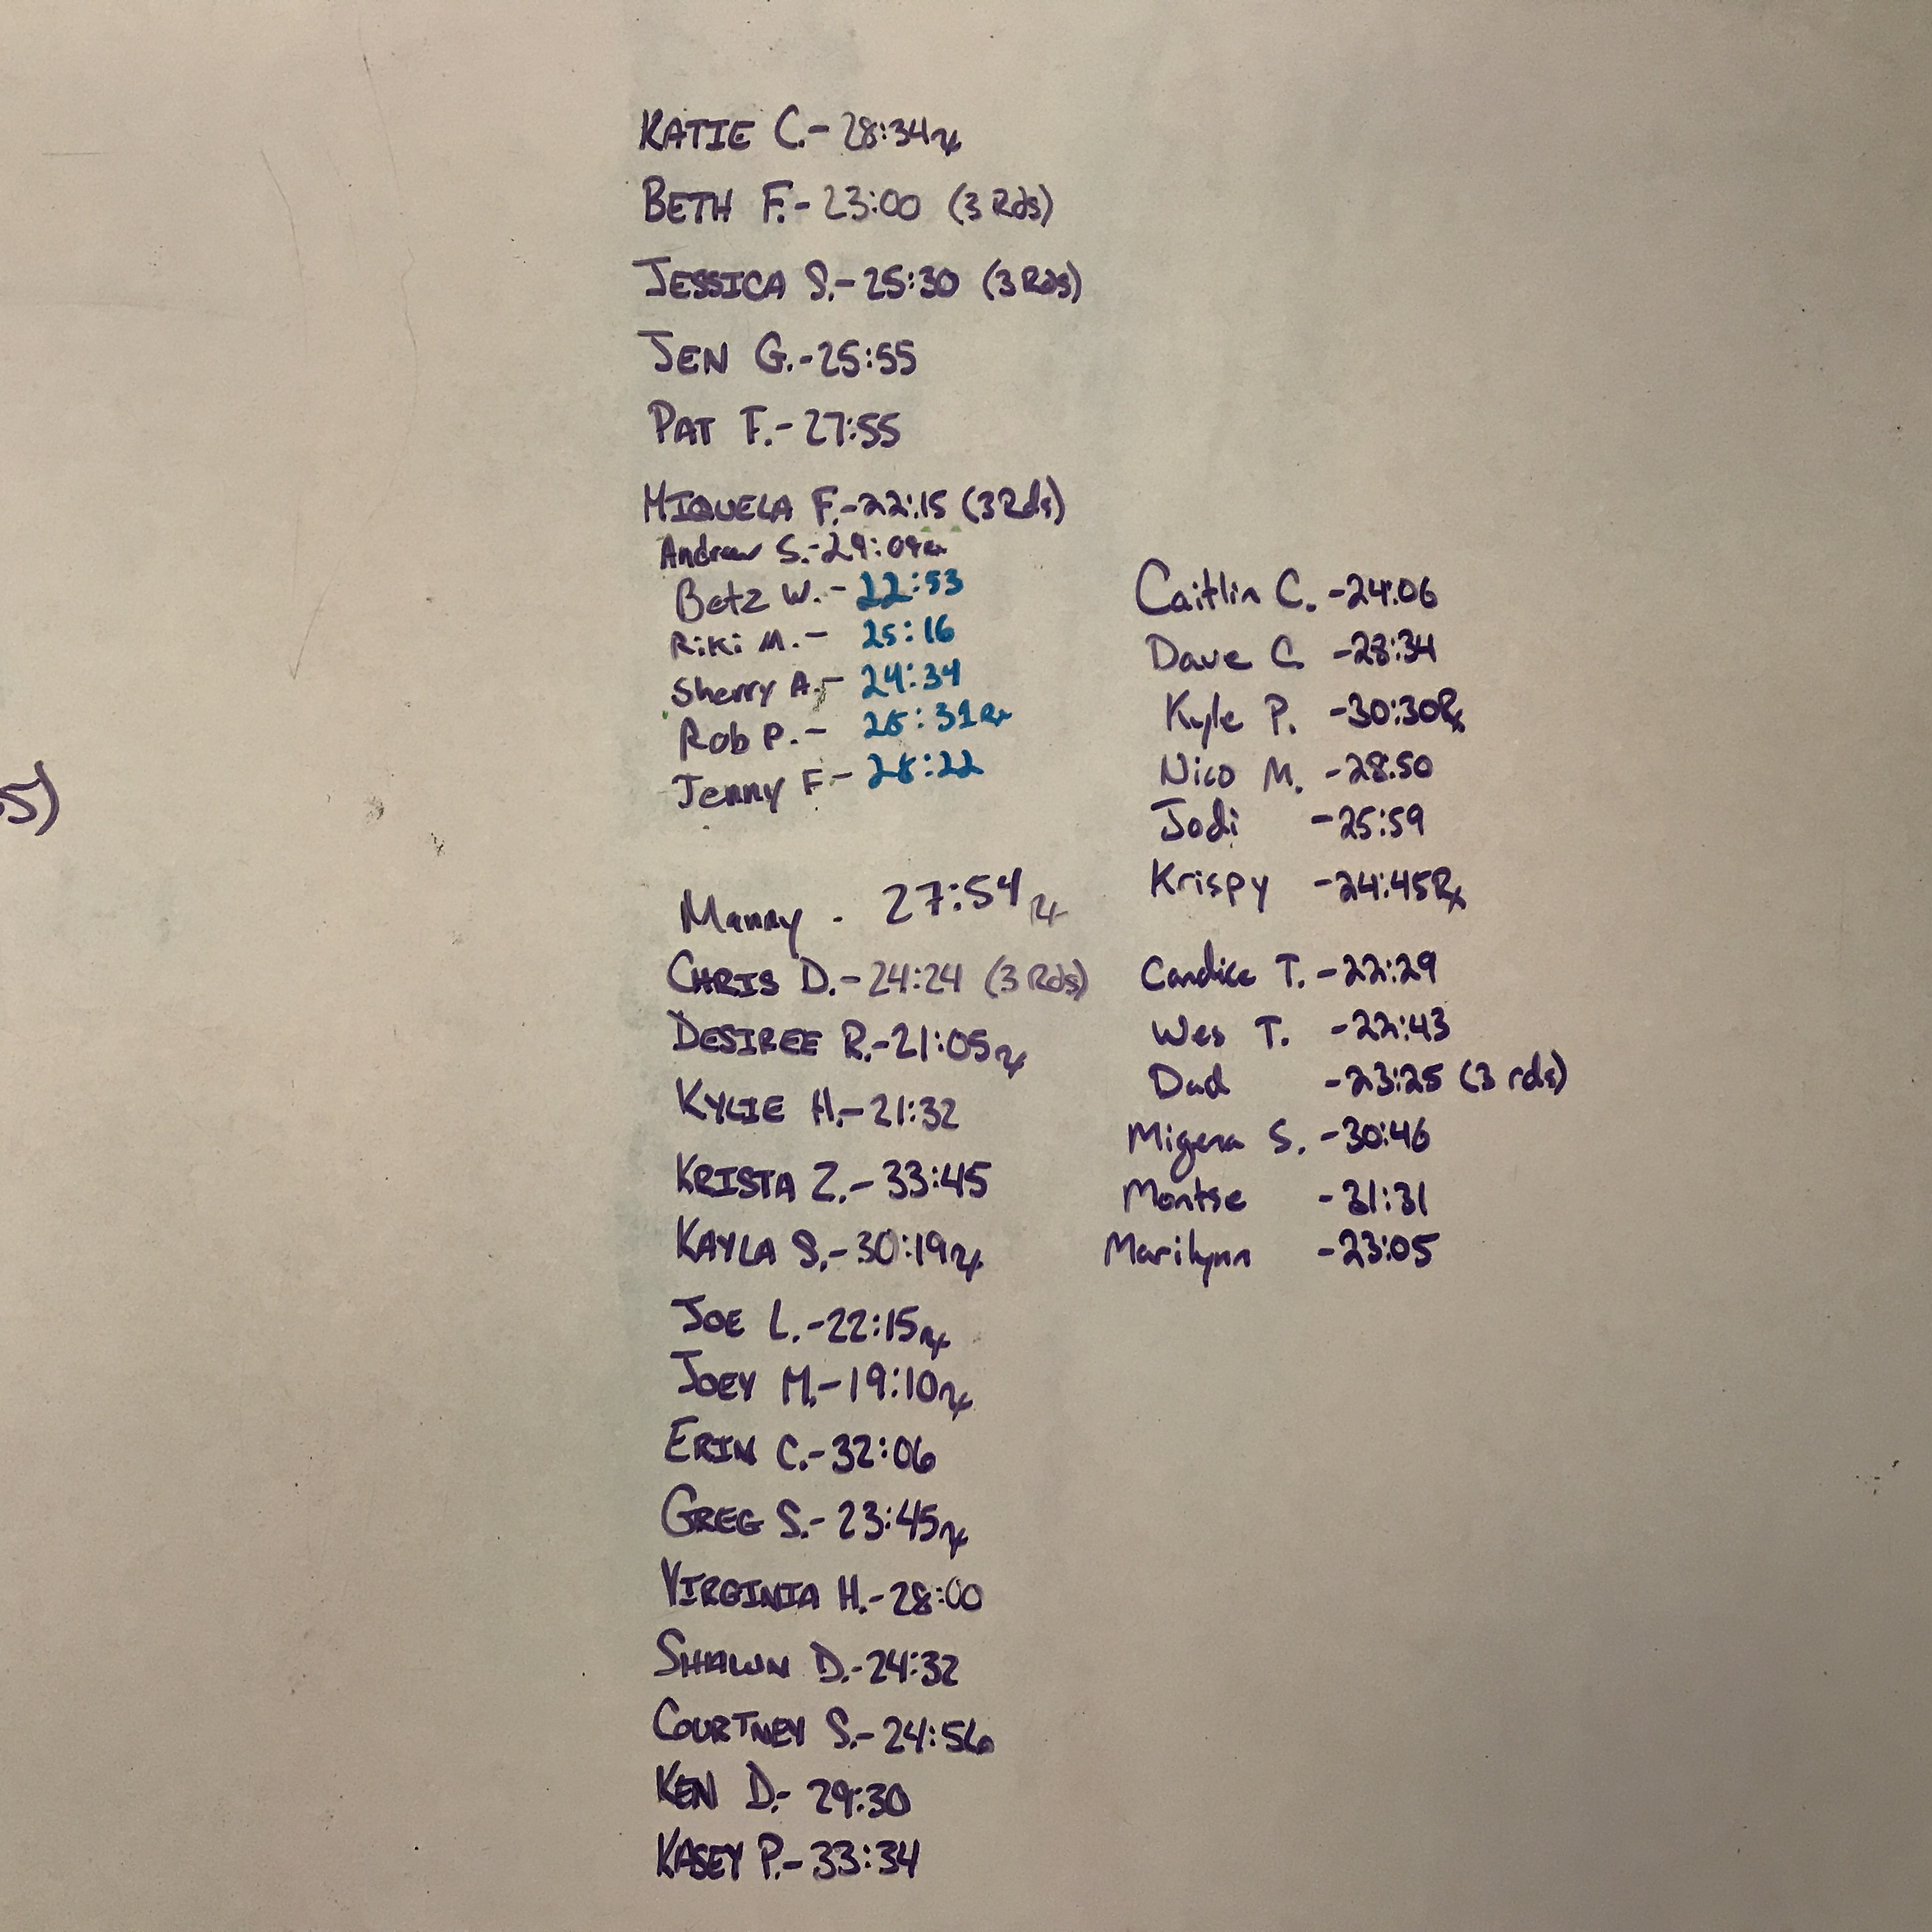 KATIE C.- 28:34 Rx
BETH F.- 23:00 (3 Rds)
JESSICA S.- 25:30 (3 Rds)
JEN G.- 25:55
PAT F.- 27:55
MIQUELA F.- 22:15 (3 Rds)
Andrew S.- 29:09 Rx
Betz W.- 22:53
Riki M.- 25:16
Sherry A.- 24:34
Rob P.- 28:31 Rx
Jenny F- 28:22
Manny - 27:54 Rx
CHRIS D.- 24:24 (3 Rds)
DESIREE R.- 21:05 Rx
KYLIE H.- 21:32
KRISTA Z.- 33:45
KAYLA S.- 30:19 Rx
JOE L.- 22:15 Rx
JOEY M.- 19:10 Rx
ERIN C.- 32:06
GREG S.- 23:45 Rx
VIRGINIA H.- 28:00
SHAWN D.- 24:32
COURTNEY S.- 24:56
KEN D.- 29:30
KASEY P.- 33:34
Caitlin C. - 24:06
Dave C. - 28:34
Kyle P. - 30:30 Rx
Nico M. - 28:50
Jodi - 25:59
Krispy - 24:45 Rx
Candice T. - 22:29
Wes T. - 22:43
Dad - 23:25 (3 rds)
Migena S. - 30:46
Montse - 31:31
Marilynn - 23:05